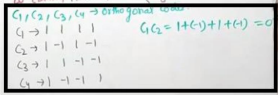 C₁, C₂, C₃, C₄ → orthogonal
C₁ → 1 1 1 1
C₁C₂ = 1+(-1)+1+(-1) = 0
C₂ → 1 -1 1 -1
C₃ → 1 1 -1 -1
C₄ → 1 -1 -1 1